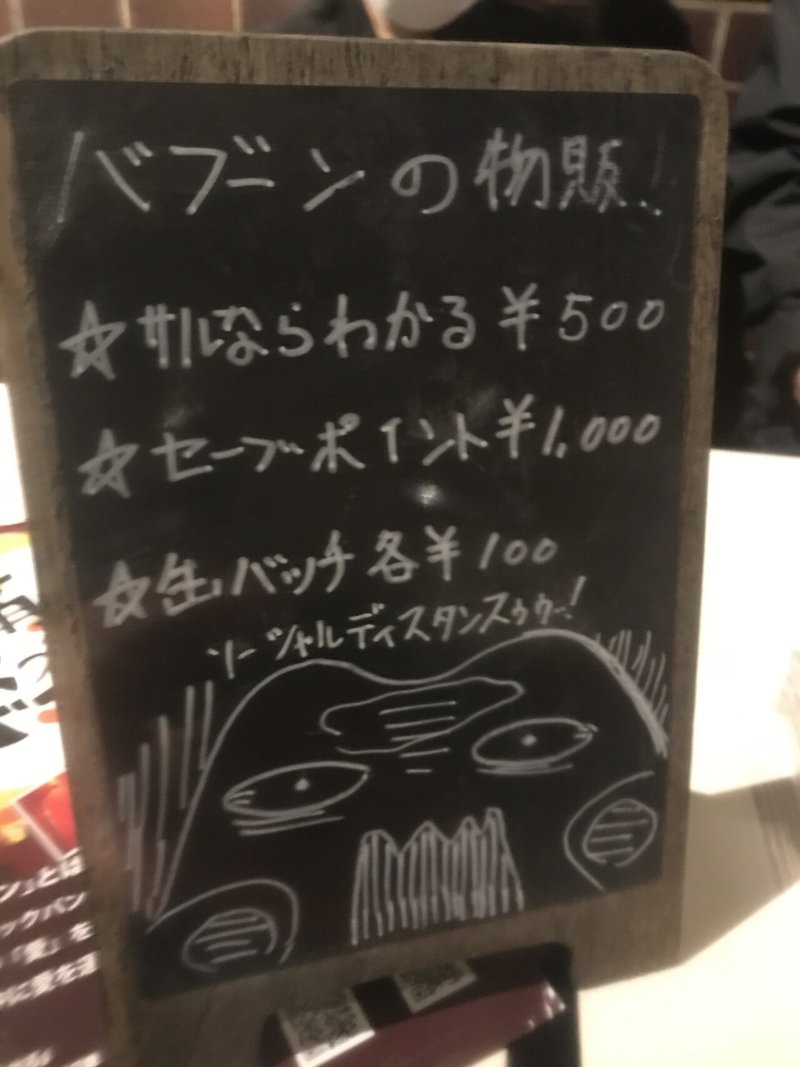 バブーンの物販!
☆サルならわかる ¥500
☆セーブポイント ¥1,000
☆缶バッチ 各¥100
ソーシャルディスタンスゥゥー!